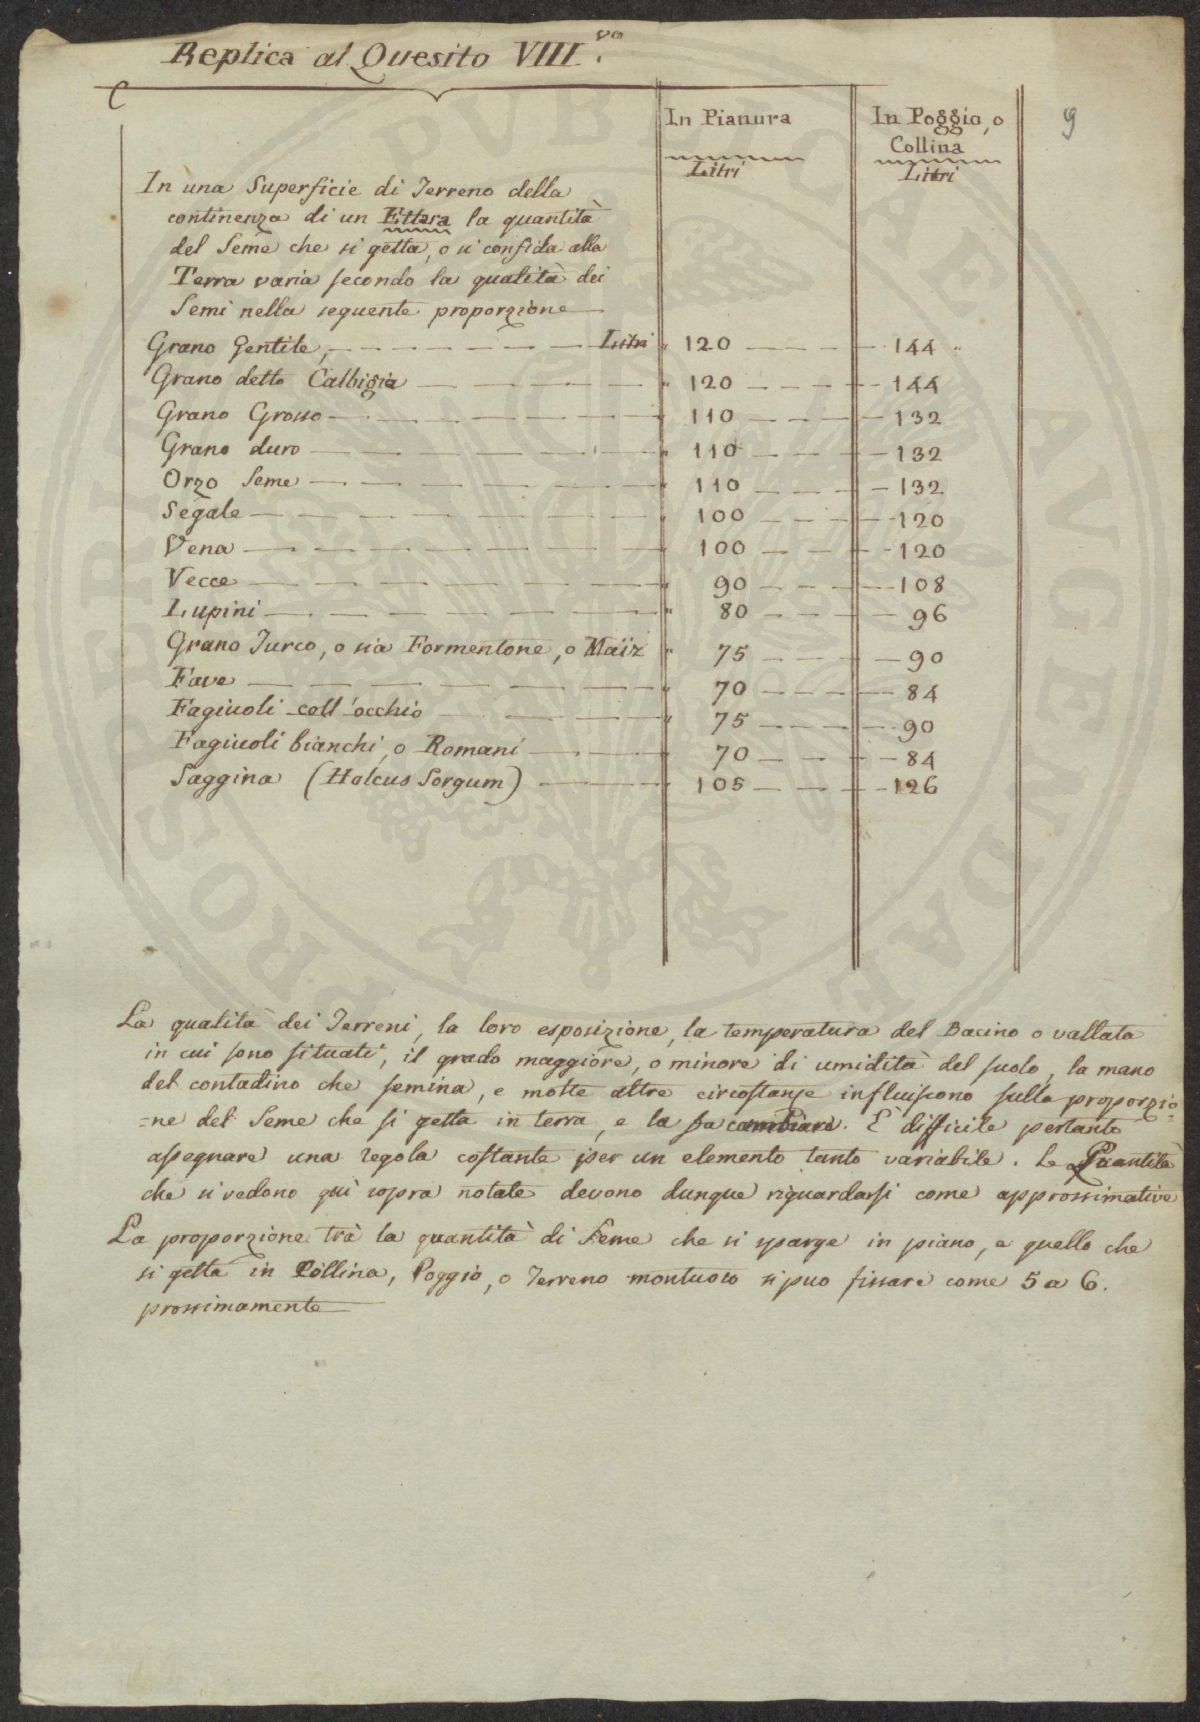 Replica al Quesito VIII.vo
C
9
In Pianura
In Poggio, o
Collina
Litri
Litri
In una Superficie di Terreno della
continenza di un Ettara la quantità
del Seme che si getta, o si confida alla
Terra varia secondo la qualità dei
Semi nella seguente proporzione
Grano Gentile, — — — Litri " 120 — — — 144
Grano detto Calbigia — — — " 120 — — — 144
Grano Grosso — — — " 110 — — — 132
Grano duro — — — " 110 — — — 132
Orzo Seme — — — " 110 — — — 132
Segale — — — " 100 — — — 120
Vena — — — " 100 — — — 120
Vecce — — — " 90 — — — 108
Lupini — — — " 80 — — — 96
Grano Turco, o sia Formentone, o Maïz " 75 — — — 90
Fave — — — " 70 — — — 84
Fagiuoli coll'occhio — — — " 75 — — — 90
Fagiuoli bianchi, o Romani — — — " 70 — — — 84
Saggina (Holcus Sorgum) — — — 105 — — — 126
La qualità dei Terreni, la loro esposizione, la temperatura del Bacino o vallata
in cui sono situati, il grado maggiore, o minore di umidità del suolo, la mano
del contadino che semina, e molte altre circostanze influiscono sulla proporzio
=ne del Seme che si getta in terra, e la fa cambiare. E difficile pertanto
assegnare una regola costante per un elemento tanto variabile. Le Quantità
che si vedono quì sopra notate devono dunque riguardarsi come approssimative
La proporzione trà la quantità di Seme che si sparge in piano, e quello che
si getta in Collina, Poggio, o Terreno montuoso si puo fissare come 5 a 6.
prossimamente